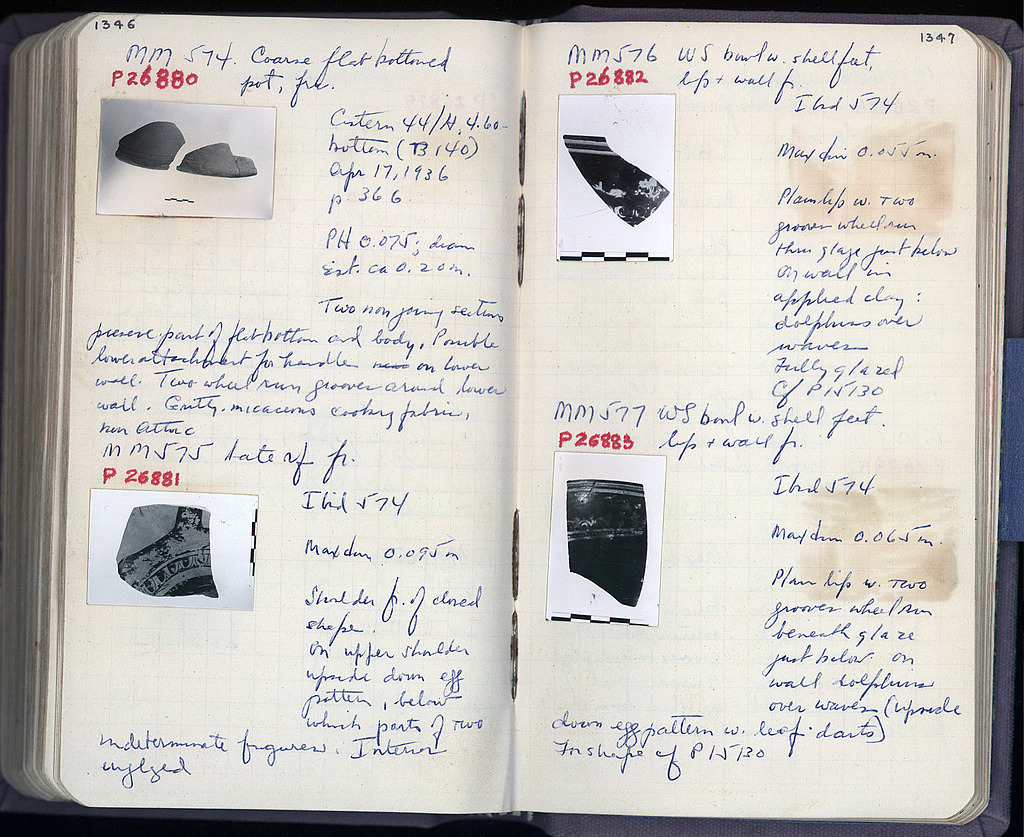 1346
MM 574. Coarse flat bottomed
P 26880 pot, frr.
Cistern 44/H, 4.60-
bottom (B 140)
Apr 17, 1936
p. 366
PH 0.075; diam
est. ca 0.20 m.
Two non joining sections
preserve part of flat bottom and body. Possible
lower attachment for handle on lower
wall. Two wheel run grooves around lower
wall. Gritty micaceous cooking fabric,
non Attic
MM 575 Late rf fr.
P 26881
Ibid 574
Max dim 0.095 m
Shoulder fr. of closed
shape.
On upper shoulder
upside down egg
pattern, below
which parts of two
indeterminate figures. Interior
unglzed
1347
MM 576 WS bowl w. shell feet,
P 26882 lip + wall fr.
Ibid 574
Max dim 0.055 m.
Plain lip w. two
grooves wheel run
thru glaze just below
On wall in
applied clay:
dolphins over
waves
Fully glazed
Cf P 15130
MM 577 WS bowl w. shell feet.
P 26883 lip + wall fr.
Ibid 574
Max dim 0.065 m.
Plain lip w. two
grooves wheel run
beneath glaze
just below. on
wall dolphins
over waves (upside
down egg pattern w. leaf darts)
For shape cf P 15130